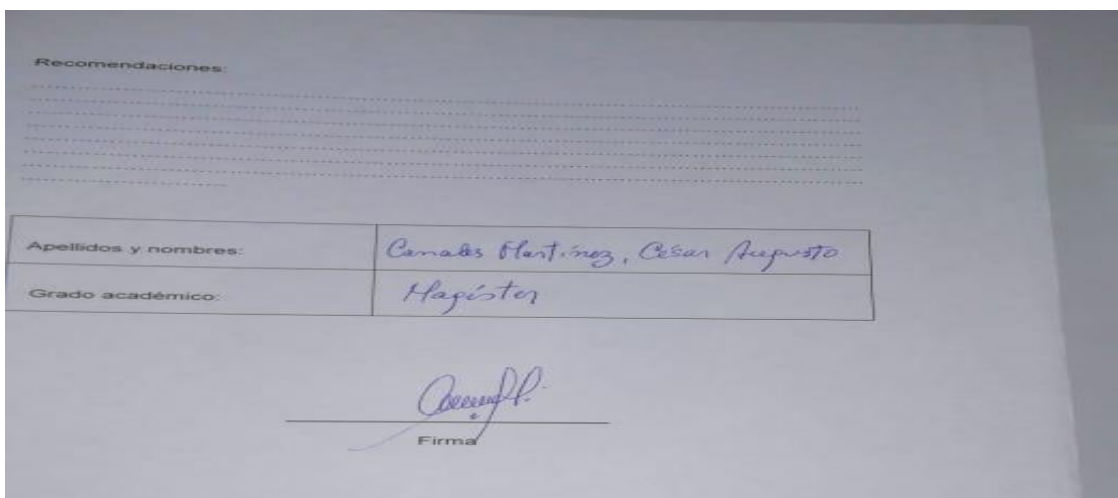 Recomendaciones:
Apellidos y nombres: Canales Martínez, César Augusto
Grado académico: Magíster
Firma